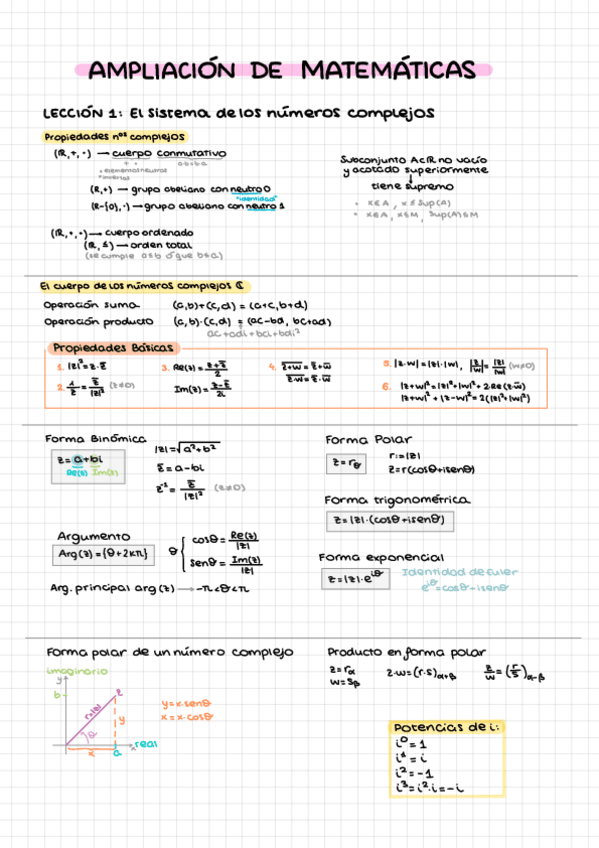 AMPLIACIÓN DE MATEMÁTICAS
LECCIÓN 1: El sistema de los números complejos
Propiedades nºs complejos
(ℝ,+,·) → cuerpo conmutativo
+ · a·b=b·a
* elementos neutros
* inversos
(ℝ,+) → grupo abeliano con neutro 0
"identidad"
(ℝ-{0},·) → grupo abeliano con neutro 1
(ℝ,+,·) → cuerpo ordenado
(ℝ,≤) → orden total
(se cumple a≤b ó que b≤a)
Subconjunto A⊂ℝ no vacío
y acotado superiormente
↓
tiene supremo
• x∈A, x≤Sup(A)
• x∈A, x≤M, Sup(A)≤M
El cuerpo de los números complejos ℂ
Operación suma (a,b)+(c,d) = (a+c,b+d)
Operación producto (a,b)·(c,d) = (ac-bd, bc+ad)
ac+adi+bci+bdi²
Propiedades Básicas
1. |z|²=z·z̅
2. 1/z = z̅/|z|² (z≠0)
3. Re(z) = (z+z̅)/2
Im(z) = (z-z̅)/2i
4. z̅+̅w̅ = z̅+w̅
z̅·̅w̅ = z̅·w̅
5. |z·w|=|z|·|w|, |z/w| = |z|/|w| (w≠0)
6. |z+w|²=|z|²+|w|²+2Re(z·w̅)
|z+w|²+|z-w|²=2(|z|²+|w|²)
Forma Binómica
z=a+bi
Re(z) Im(z)
|z|=√(a²+b²)
z̅=a-bi
z⁻¹ = z̅/|z|² (z≠0)
Forma Polar
z=r_θ
r:=|z|
z=r(cosθ+isenθ)
Forma trigonométrica
z=|z|·(cosθ+isenθ)
Argumento
Arg(z)={θ+2kπ}
θ { cosθ = Re(z)/|z|
senθ = Im(z)/|z|
Arg. principal arg(z) → -π<θ<π
Forma exponencial
z=|z|·e^iθ
Identidad de Euler
e^iθ=cosθ-isenθ
Forma polar de un número complejo
imaginario
y
b
z
r=|z|
y
θ
x
a
x
real
y=x·senθ
x=x·cosθ
Producto en forma polar
z=r_α
w=s_β
z·w=(r·s)_α+β
z/w=(r/s)_α-β
Potencias de i:
i⁰=1
i¹=i
i²=-1
i³=i²·i=-i